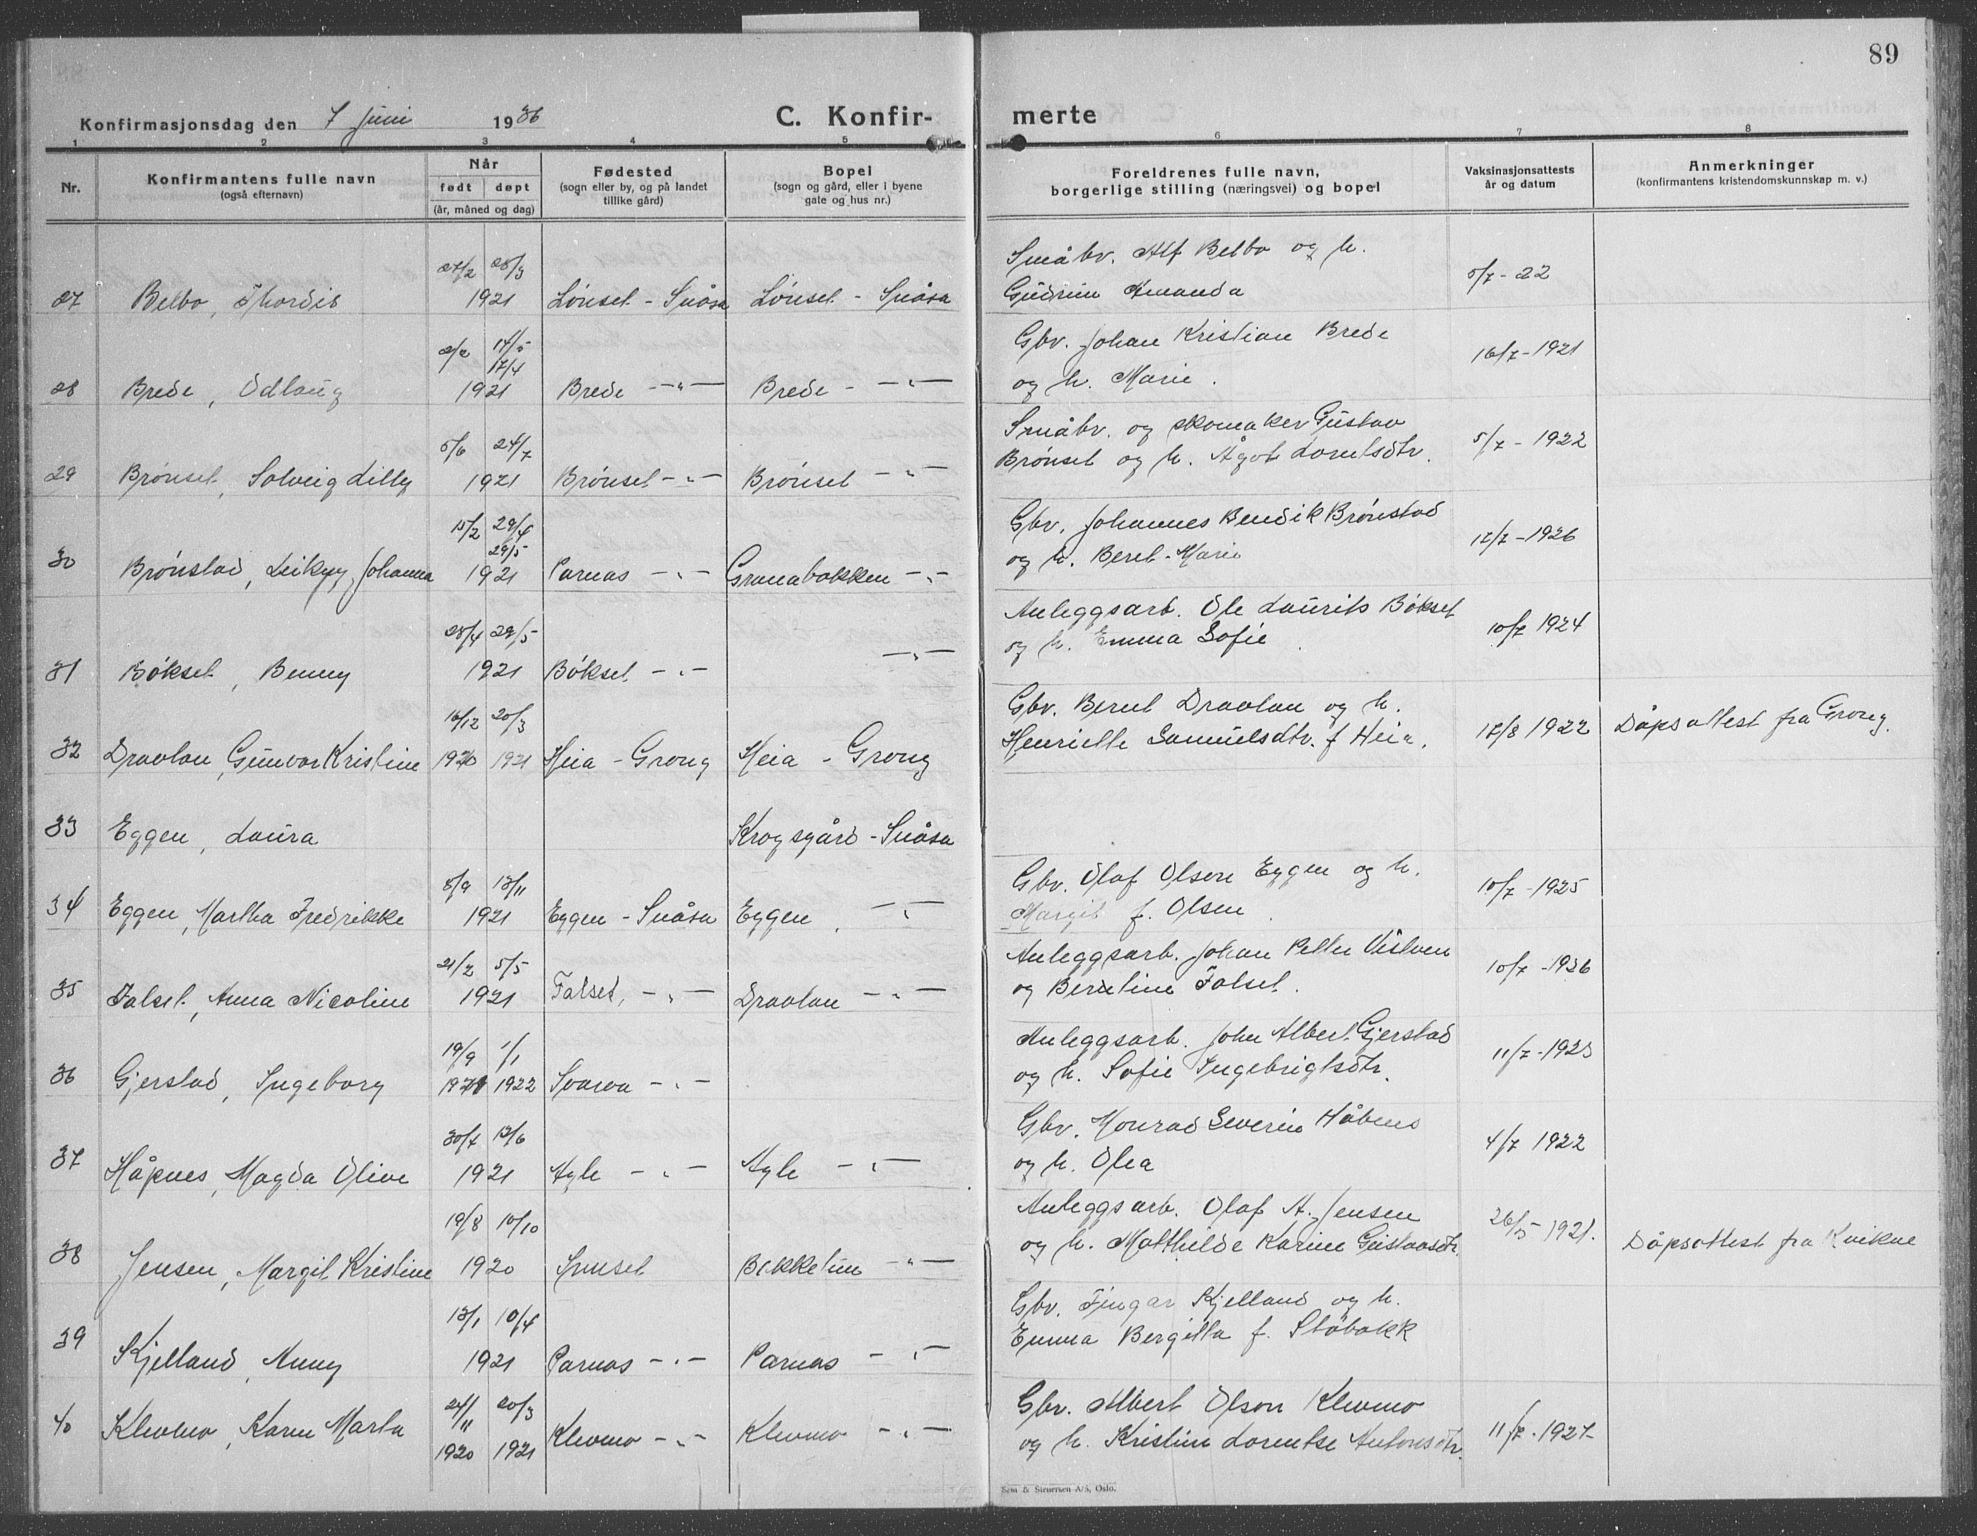 89
Konfirmasjonsdag den 7 juni 1936
C. Konfir-
merte
1 2 3 4 5 6 7 8
Nr.
Konfirmantens fulle navn
(også efternavn)
Når
født døpt
(år, måned og dag)
Fødested
(sogn eller by, og på landet
tillike gård)
Bopel
(sogn og gård, eller i byene
gate og hus nr.)
Foreldrenes fulle navn,
borgerlige stilling (næringsvei) og bopel
Vaksinasjonsattests
år og datum
Anmerkninger
(konfirmantens kristendomskunnskap m. v.)
28/3 Småbr. Alf Belbo og h.
27 Belbo, Thordis 1921 Lønset - Snåsa Lønset - Snåsa Gudrun Amanda 5/7 - 22
2/2 17/4 Gbr. Johan Kristian Brede
28 Brede, Odlaug 1921 Brede -"- Brede -"- og h. Marie. 16/7 - 1921
5/6 24/7 Småbr. og skomaker Gustav
29 Brønset, Solveig Lilly 1921 Brønset -"- Brønset -"- Brønset og h. Ågot Lorntsdtr. 5/7 - 1922
15/2 29/5 Gbr. Johannes Bendik Brønstad
30 Brønstad, Johanna 1921 Parnas -"- Granabakken -"- og h. Beret-Marie 12/7 - 1926
28/4 29/5 Anleggsarb. Ole Laurits Bøkset
31 Bøkset, Benny 1921 Bøkset -"- -"- og h. Emma Sofie 10/7 1924
16/12 20/3 Gbr. Bernt Dravlan og h.
32 Dravlan, Gunvor Kristine 1920 1921 Heia - Grong Heia - Grong Henriette Samuelsdtr. f Heia. 17/8 1922 Dåpsattest fra Grong.
33 Eggen, Laura Krogsgård - Snåsa
8/9 13/11 Gbr. Olaf Olsen Eggen og h.
34 Eggen, Martha Fredrikke 1921 Eggen - Snåsa Eggen, -"- Margit f. Olsen. 10/7 - 1925
21/2 5/5 Anleggsarb. Johan Petter
35 Falset, Anna Nicoline 1921 Falset, -"- Dravlan -"- og Berntine Falset. 10/7 - 1936
19/9 1/1 Anleggsarb. John Albert Gjerstad
36 Gjerstad, Ingeborg 1921 1922 Svarva -"- og h. Sofie Ingebrigtsdtr. 11/7 - 1923
12/6 Gbr. Monrad Severin Håbnes
37 Håpnes, Magda Olive 1921 Agle -"- Agle -"- og h. Olea 4/7 1922
19/8 10/10 Anleggsarb. Olaf A. Jensen
38 Jensen, Margit Kristine 1920 Bekketun -"- og h. Matthilde Karine Gustavsdtr. 26/5 - 1921. Dåpsattest fra Kvikne
13/1 10/4 Gbr. Fingar Kjelland og h.
39 Kjelland, Anny 1921 Parnas -"- Parnas -"- Emma Bergitta f. Støbakk
24/11 20/3 Gbr. Albert Olson Klevmo
40 Klevmo, Karen Marta 1920 1921 Klevmo -"- Klevmo -"- og h. Kristine Lorentse Antonsdtr. 11/7 - 1927
Sem & Stenersen A/S, Oslo.